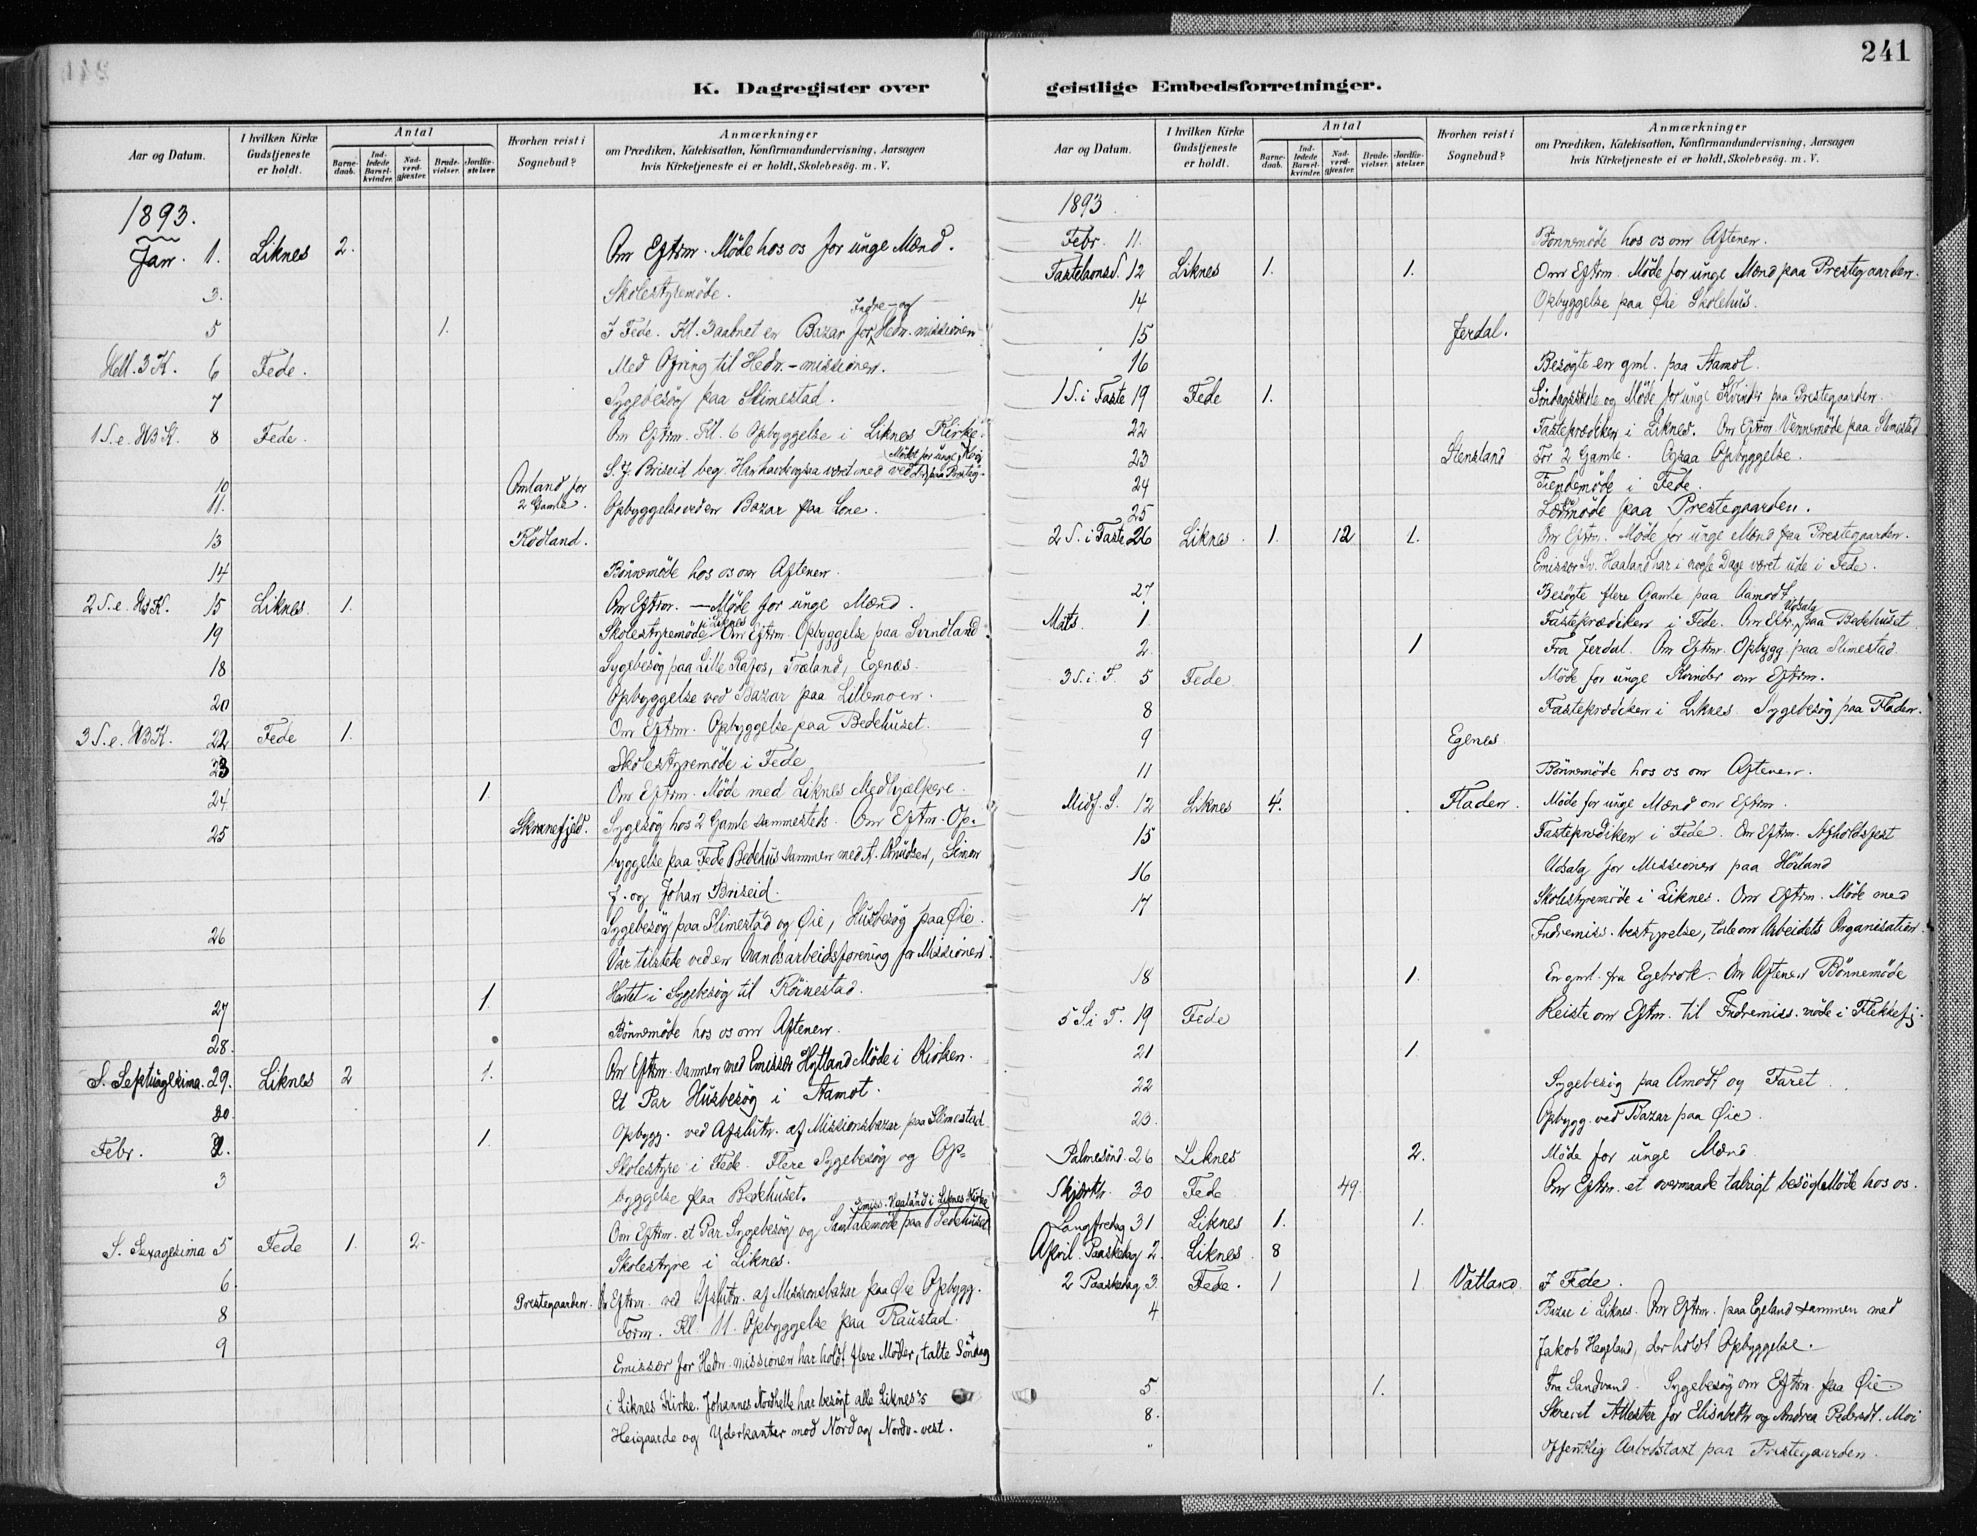 241
K. Dagregister over geistlige Embedsforretninger.
Aar og Datum. I hvilken Kirke Gudstjeneste er holdt. Antal Barnedaab. Indledede Barselkvinder. Nadverdgjæster. Brudevielser. Jordfæstelser. Hvorhen reist i Sognebud? Anmærkninger om Prædiken, Katekisation, Konfirmandundervisning, Aarsagen hvis Kirketjeneste ei er holdt, Skolebesøg. m. V.
1893.
Jan. 1. Liknes 2. Om Eftrm. Møde hos os for unge Mænd.
3. Skolestyremøde.
5 1. I Fede. Kl. 3 aabnet en Bazar for Indre- og Hedn. missionen
Hell. 3 K. 6 Fede. Med Ofring til Hedn.-missionen.
7 Sygebesøg paa Slimestad.
1 S. e. H3K. 8 Fede. Om Eftrm. Kl. 6 Opbyggelse i Liknes Kirke.
S. J. Briseid beg.
10 Omland for 2 Gamle.
11. Opbyggelse ved en Bazar paa Lone.
13 Rødland.
14 Bønnemøde hos os om Aftenen.
2 S. e. H3K. 15 Liknes 1. Om Eftrm. — Møde for unge Mænd.
19 Skolestyremøde i Liknes Om Eftrm. Opbyggelse paa Svindland
18 Sygebesøg paa Lille Rafos, Træland, Egenæs.
20 Opbyggelse ved Bazar paa Lillemoen.
3 S. e. H3K. 22 Fede 1. Om Eftrm. Opbyggelse paa Bedehuset.
23 Skolestyremøde i Fede
24 1. Om Eftrm. Møde med Liknes Medhjælpere.
25 Sygesøg hos 2 Gamle sammesteds. Om Eftm. Op-
byggelse paa Fede Bedehus sammen med A. Knudsen, Simon
J. og Johan Briseid.
26 Sygebesøg paa Slimestad og Øie, Husbesøg paa Øie.
Var tilstede ved en Mandsarbeidsforening for Missionen.
27 1 Hentet i Sygebesøg til Röinestad.
28. Bønnemøde hos os om Aftenen.
S. Septuagesima. 29. Liknes 2 1. Om Eftrm. sammen med Emissær Hytland Møde i Kirken.
30 Et Par Husbesøg i Aamot.
Febr. 2. 1. Opbygg. ved Afslutn. af Missionsbazar paa Slimestad
3 Skolestyre i Fede. Flere Sygebesøg og Op-
byggelse paa Bedehuset. Emiss. Haaland i Liknes Kirke
S. Sexagesima 5 Fede 1. 2 Om Eftrm. et Par Sygebesøg og Samtalemøde paa Bedehuset
6 Skolestyre i Liknes.
8 Prestegaarden. Om Eftrm. ved Afslutn. af Missionsbazar paa Øie Opbygg.
9 Form. Kl. 11. Opbyggelse paa Raustad.
Emissær for Hedn. missionen har holdt flere Møder, talte Söndag
i Liknes Kirke. Johannes Nordhelle har besøgt alle Liknes's
Heigaarde og Yderkanter mod Nord og Nordv-vest.
Aar og Datum. I hvilken Kirke Gudstjeneste er holdt. Antal Barnedaab. Indledede Barselkvinder. Nadverdgjæster. Brudevielser. Jordfæstelser. Hvorhen reist i Sognebud? Anmærkninger om Prædiken, Katekisation, Konfirmandundervisning, Aarsagen hvis Kirketjeneste ei er holdt, Skolebesøg. m. V.
1893
Febr. 11. Bønnemøde hos os om Aftenen.
Fastelavns S. 12 Liknes 1. 1. Om Eftrm. Møde for unge Mænd paa Prestegaarden.
14 Opbyggelse paa Øie Skolehus.
15 Jerdal.
16 Besøgte en gml. paa Aamot.
1 S. i Faste 19 Fede 1. Søndagsskole og Møde for unge Kvinder paa Prestegaarden.
22 Fasteprædiken i Liknes. Om Eftrm. Vennemøde paa Slimestad
23 Stensland For 2 Gamle. Ogsaa Opbyggelse.
24 i Fede.
25 paa Prestegaarden.
2 S. i Faste 26 Liknes 1. 12 1. Om Eftrm. Møde for unge Mænd paa Prestegaarden.
Emissær Sv. Haaland har i nogle Dage været ude i Fede.
27 Besøgte flere Gamle paa Aamodt
Mats. 1. Fasteprædiken i Fede. Om Eftr. Udsalg paa Bedehuset
2. 1 Fra Jerdal. Om Eftrm. Opbygg. paa Slimestad.
3 S. i F. 5 Fede Møde for unge Kvinder om Eftrm.
8 Fasteprædiken i Liknes Sygebesøg paa Fladen.
9 Egenes.
11 Bönnemöde hos os om Aftenen.
Midf. S. 12 Liknes 4. Fladen. Møde for unge Mænd om Eftrm.
15 Fasteprædiken i Fede. Om Eftrm. Afholdsfest
16 Udsalg for Missionen paa Hörland
17 Skolestyremøde i Liknes. Om Eftrm. Møde med
Indremiss. bestyrelse, tale om Arbeidets Organisation.
18 1. En gml. fra Egebrok. Om Aftenen Bönnemöde
5 S i F. 19 Fede Reiste om Eftm. til Indremiss. møde i Flekkefj.
21 1.
22 Sygebesøg paa Amodt og Faret
23. Opbygg. ved Bazar paa Øie.
Palmesønd. 26 Liknes 2. Møde for unge Mænd
Skjærth. 30 Fede 49. Om Eftrm. et overmaade talrigt besøgt Møde hos os.
Langfredag 31 Liknes 1. 1.
April. Paaskedag 2. Liknes 8
2 Paaskedag 3. Fede. 1 1 Vatland I Fede.
4 Bazar i Liknes. Om Eftrm. paa Egeland sammen med
Jakob Hegeland, der holdt Opbyggelse.
5 1. Fra Sandvand. Sygebesøg om Eftrm. paa Øie
8. Skrevet Attester for Elisabeth og Andrea Pedersdt. Moi
" Offentlig Aabodstaxt paa Prestegaarden.